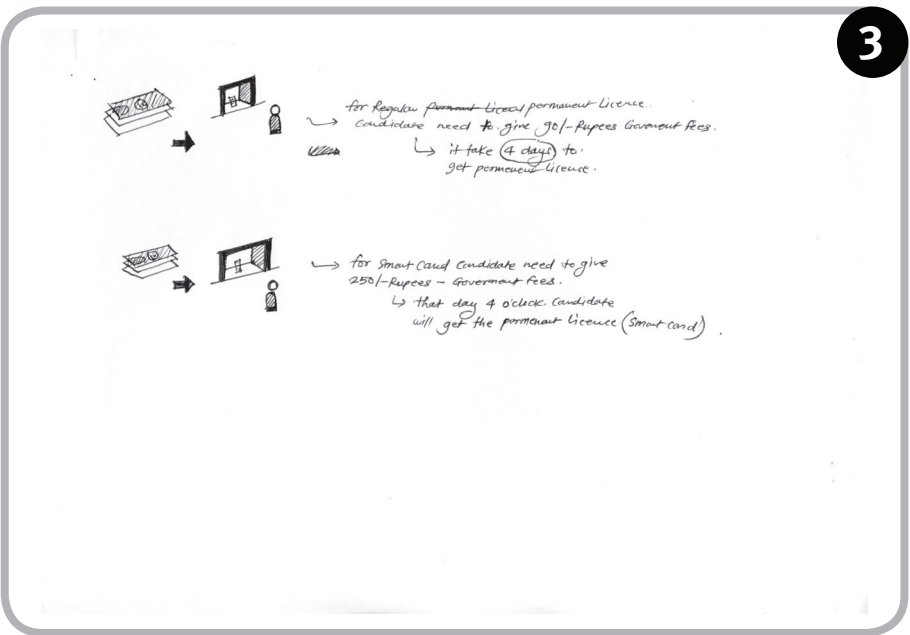 3
for Regular permanent Licence.
candidate need to give 90/-Rupees Goverment fees.
↳ it take 4 days to.
get permenent Licence.
→ for Smart Card Candidate need to give
250/-Rupees - Goverment fees.
↳ that day 4 o'clock. Candidate
will get the permenant Licence (Smart card).